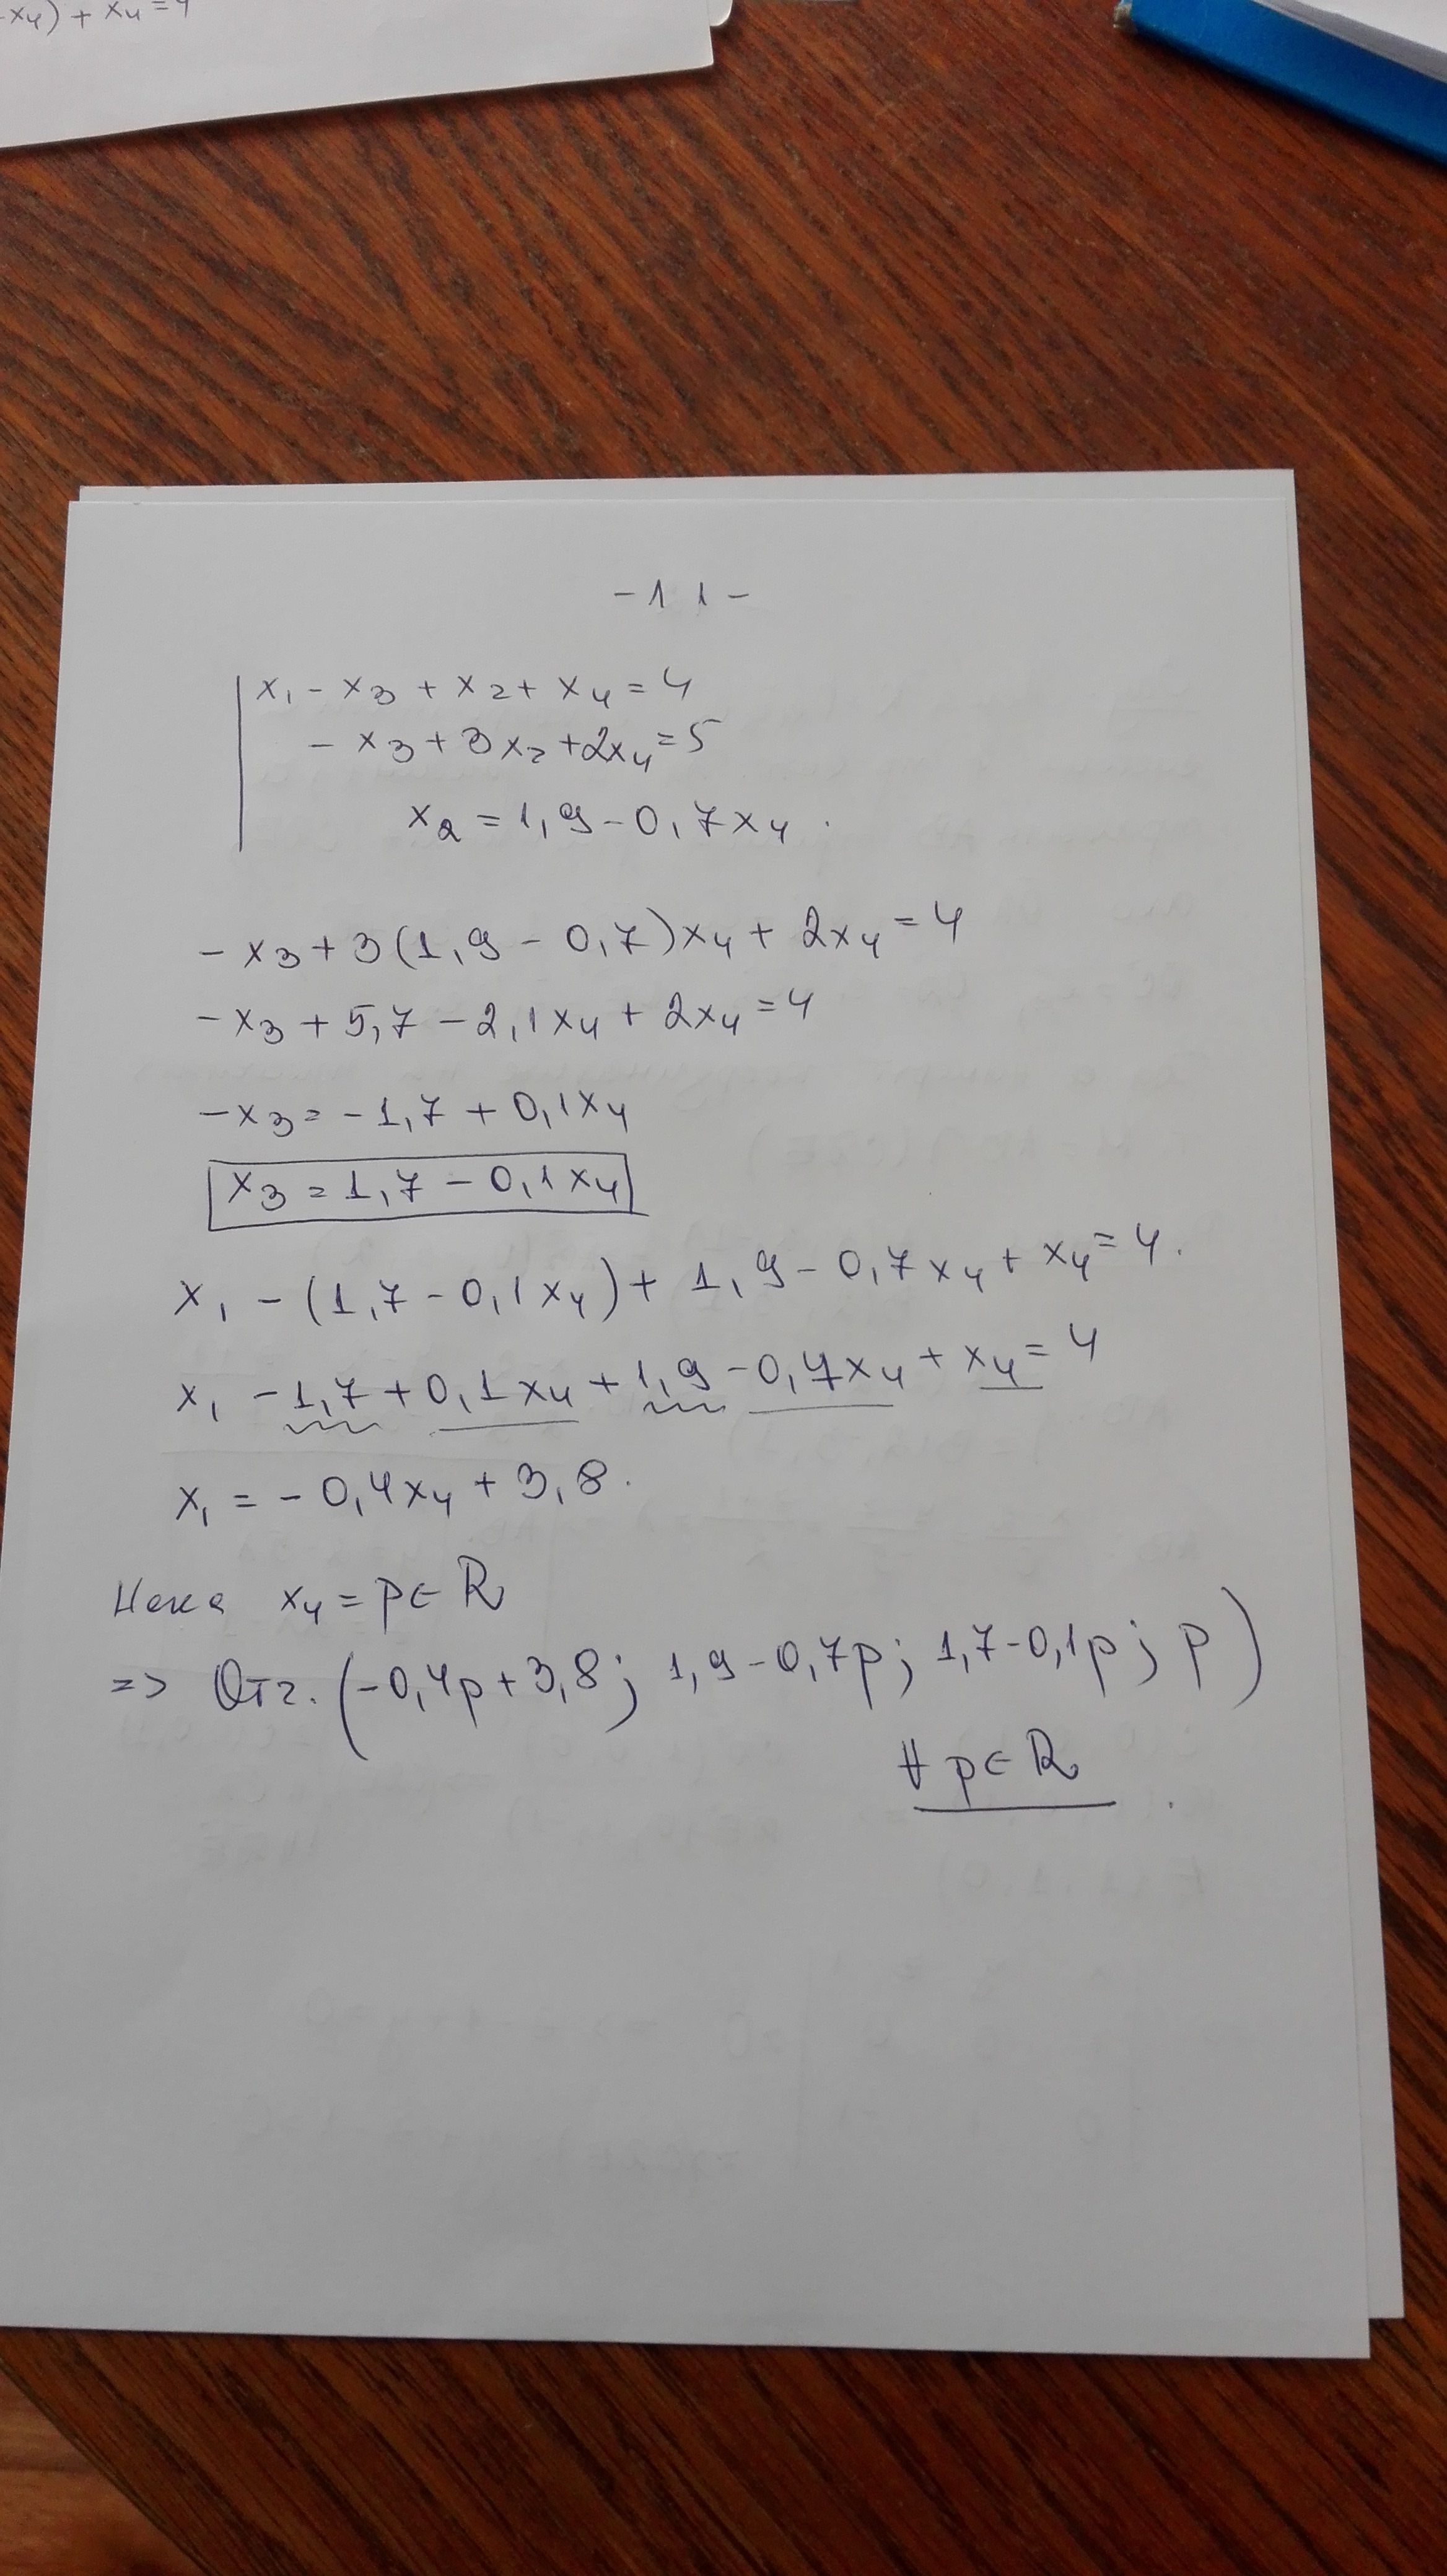 x₄) + x₄ = 4
- 1 1 -
x₁ - x₃ + x₂ + x₄ = 4
- x₃ + 3x₂ + 2x₄ = 5
x₂ = 1,9 - 0,7x₄.
- x₃ + 3(1,9 - 0,7)x₄ + 2x₄ = 4
- x₃ + 5,7 - 2,1x₄ + 2x₄ = 4
- x₃ = - 1,7 + 0,1x₄
x₃ = 1,7 - 0,1x₄
x₁ - (1,7 - 0,1x₄) + 1,9 - 0,7x₄ + x₄ = 4.
x₁ - 1,7 + 0,1x₄ + 1,9 - 0,7x₄ + x₄ = 4
x₁ = - 0,4x₄ + 3,8.
Нека x₄ = p ∈ R
=> Отг. (-0,4p + 3,8; 1,9 - 0,7p; 1,7 - 0,1p; p)
∀ p ∈ R